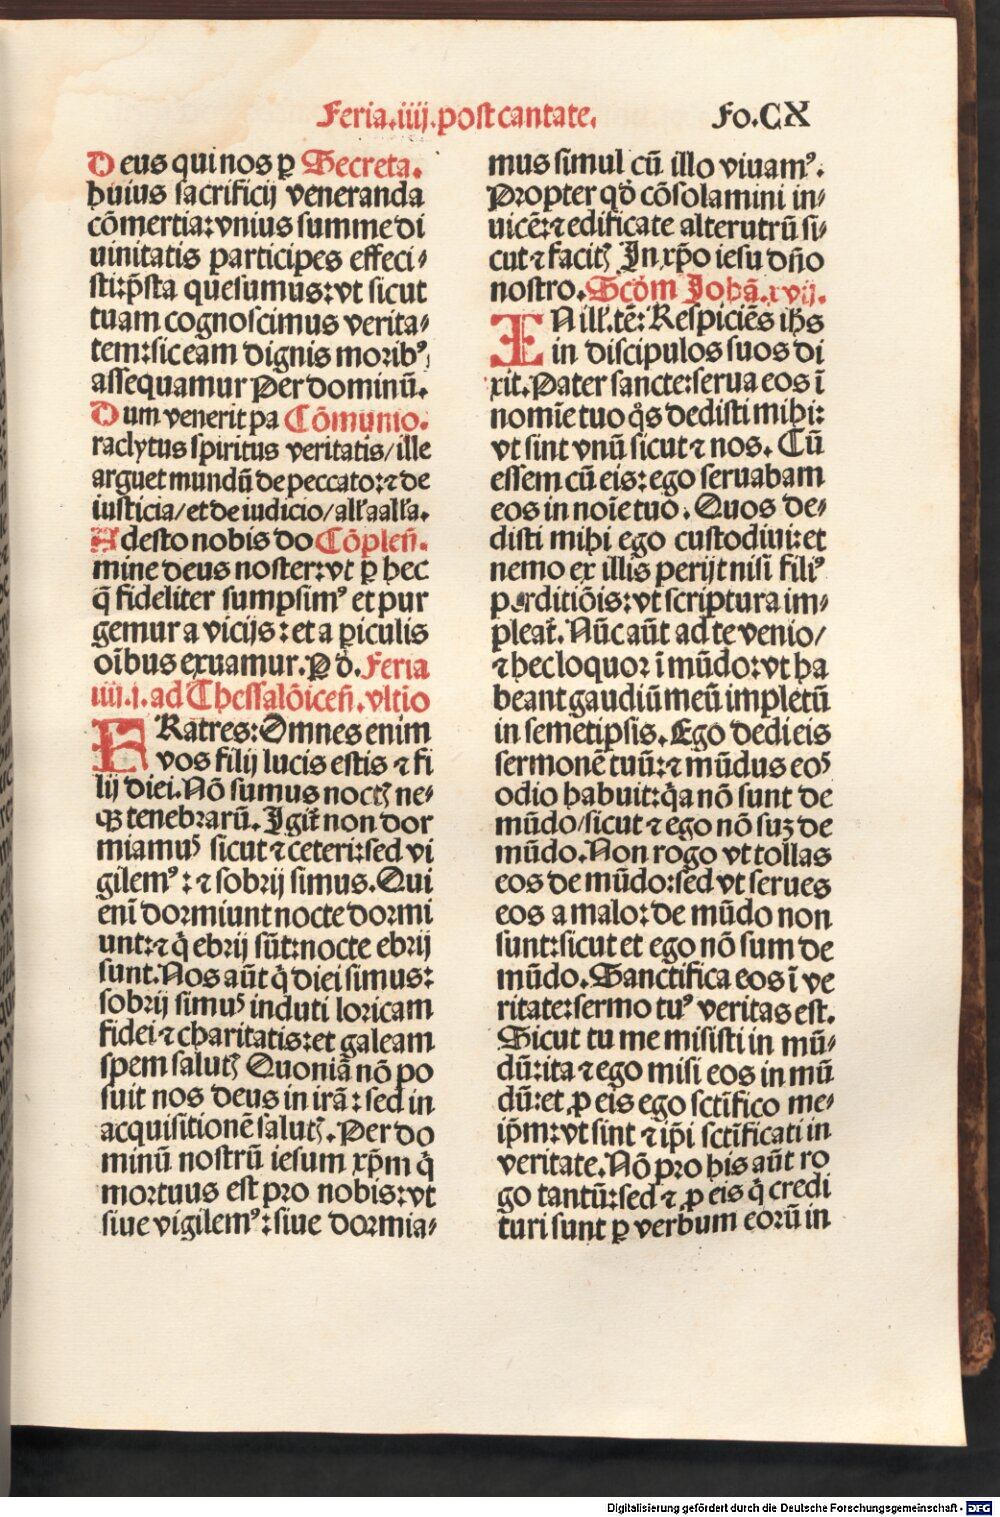 Feria.iiij.post cantate. Fo.CX
Deus qui nos ꝑ Secreta.
huius sacrificij veneranda
cõmertia: vnius summe di
uinitatis participes effeci⸗
sti: p̃sta quesumus: vt sicut
tuam cognoscimus verita⸗
tem: sic eam dignis moribꝰ
assequamur Per dominũ.
Dum venerit pa Cõmunio.
raclytus spiritus veritatis/ ille
arguet mundũ de peccato: ⁊ de
iusticia/ et de iudicio/ all'a all'a.
Adesto nobis do Cõpleñ.
mine deus noster: vt ꝑ hec
q̃ fideliter sumpsimꝰ et pur
gemur a vicijs: et a ꝑiculis
oĩbus exuamur. P d̃. Feria
iiij. i. ad Thessalõiceñ. vltio
FRatres: Omnes enim
vos filij lucis estis ⁊ fi
lij diei. Nõ sumus noctꝭ ne⸗
qꝫ tenebrarũ. Igit̃ non dor
miamuꝰ sicut ⁊ ceteri: sed vi
gilemꝰ: ⁊ sobrij simus. Qui
enĩ dormiunt nocte dormi
unt: ⁊ q̇ ebrij sũt: nocte ebrij
sunt. Nos aũt q̇ diei simus:
sobrij simuꝰ induti loricam
fidei ⁊ charitatis: et galeam
spem salutꝭ Quoniã nõ po
suit nos deus in irã: sed in
acquisitionẽ salutꝭ. Per do
minũ nostrũ iesum xp̃m q̇
mortuus est pro nobis: vt
siue vigilemꝰ: siue dormia⸗
mus simul cũ illo viuamꝰ.
Propter qd̃ cõsolamini in⸗
uicẽ: ⁊ edificate alterutrũ si⸗
cut ⁊ facitꝭ In xp̃o iesu dño
nostro. Scd̃m Johã. xvij.
IN ill'. tẽ: Respiciẽs ih̃s
in discipulos suos di
xit. Pater sancte: serua eos ĩ
nomĩe tuo q̃s dedisti mihi:
vt sint vnũ sicut ⁊ nos. Cũ
essem cũ eis: ego seruabam
eos in noĩe tuo. Quos de⸗
disti mihi ego custodiui: et
nemo ex illis perijt nisi filiꝰ
perditiõis: vt scriptura im⸗
pleat̃. Nũc aũt ad te venio/
⁊ hec loquor ĩ mũdo: vt ha
beant gaudiũ meũ impletũ
in semetipsis. Ego dedi eis
sermonẽ tuũ: ⁊ mũdus eoꝰ
odio habuit: q̃a nõ sunt de
mũdo/ sicut ⁊ ego nõ suꝫ de
mũdo. Non rogo vt tollas
eos de mũdo: sed vt serues
eos a malo: de mũdo non
sunt: sicut et ego nõ sum de
mũdo. Sanctifica eos ĩ ve
ritate: sermo tuꝰ veritas est.
Sicut tu me misisti in mũ⸗
dũ: ita ⁊ ego misi eos in mũ
dũ: et ꝓ eis ego sct̃ifico me⸗
ip̃m: vt sint ⁊ ip̃i sct̃ificati in
veritate. Nõ pro his aũt ro
go tantũ: sed ⁊ ꝓ eis q̇ credi
turi sunt ꝑ verbum eorũ in
Digitalisierung gefördert durch die Deutsche Forschungsgemeinschaft - DFG